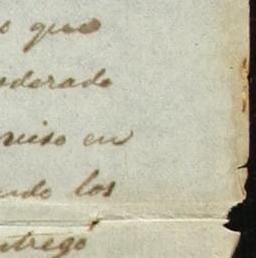 o que
oderado
quiso en
ndo los
ntregó